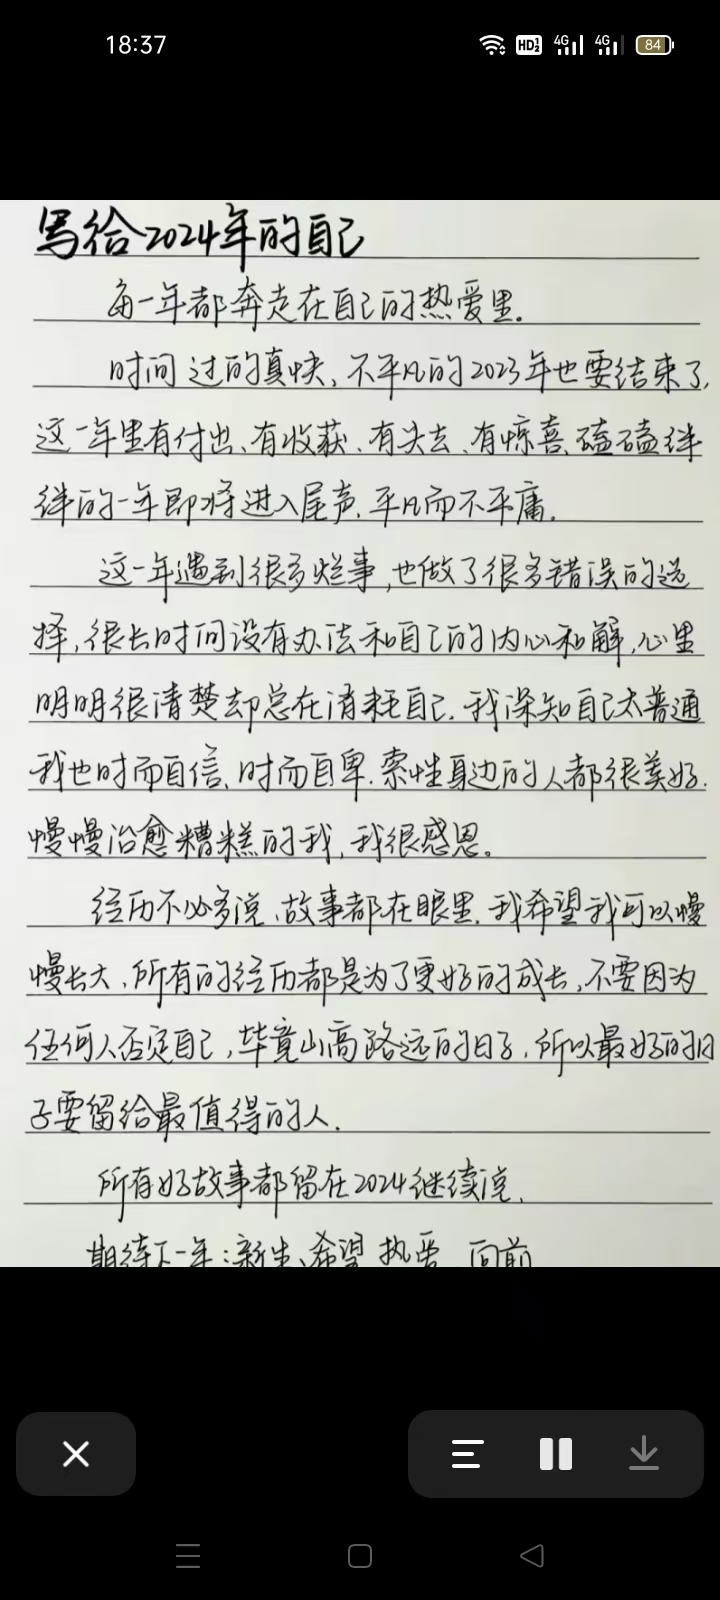 18:37
HD 4G 4G 84
写给2024年的自己
每一年都奔走在自己的热爱里.
时间过的真快、不平凡的2023年也要结束了,
这一年里有付出、有收获、有失去、有惊喜、磕磕绊
绊的一年即将进入尾声.平凡而不平庸.
这一年遇到很多烂事,也做了很多错误的选
择,很长时间没有办法和自己的内心和解,心里
明明很清楚却总在消耗自己.我深知自己太普通
我也时而自信、时而自卑.索性身边的人都很美好.
慢慢治愈糟糕的我,我很感恩。
经历不必多说、故事都在眼里.我希望我可以慢
慢长大、所有的经历都是为了更好的成长,不要因为
任何人否定自己,毕竟山高路远的日子,所以最好的日
子要留给最值得的人.
所有好故事都留在2024继续说.
期待下一年:新生、希望 热爱 向前